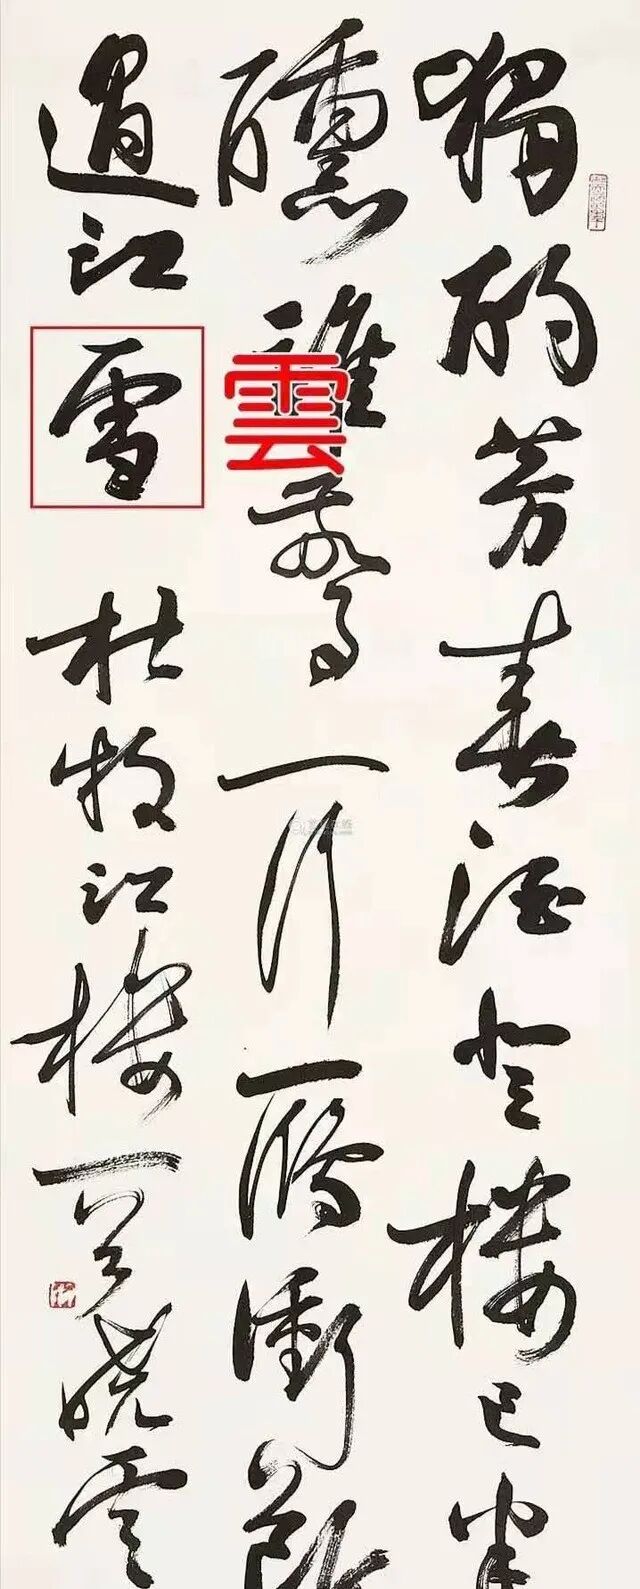 獨酌芳春酒登樓已半
醺誰驚一行雁衝斷
過江雪 杜牧江樓一首曉雲
雲